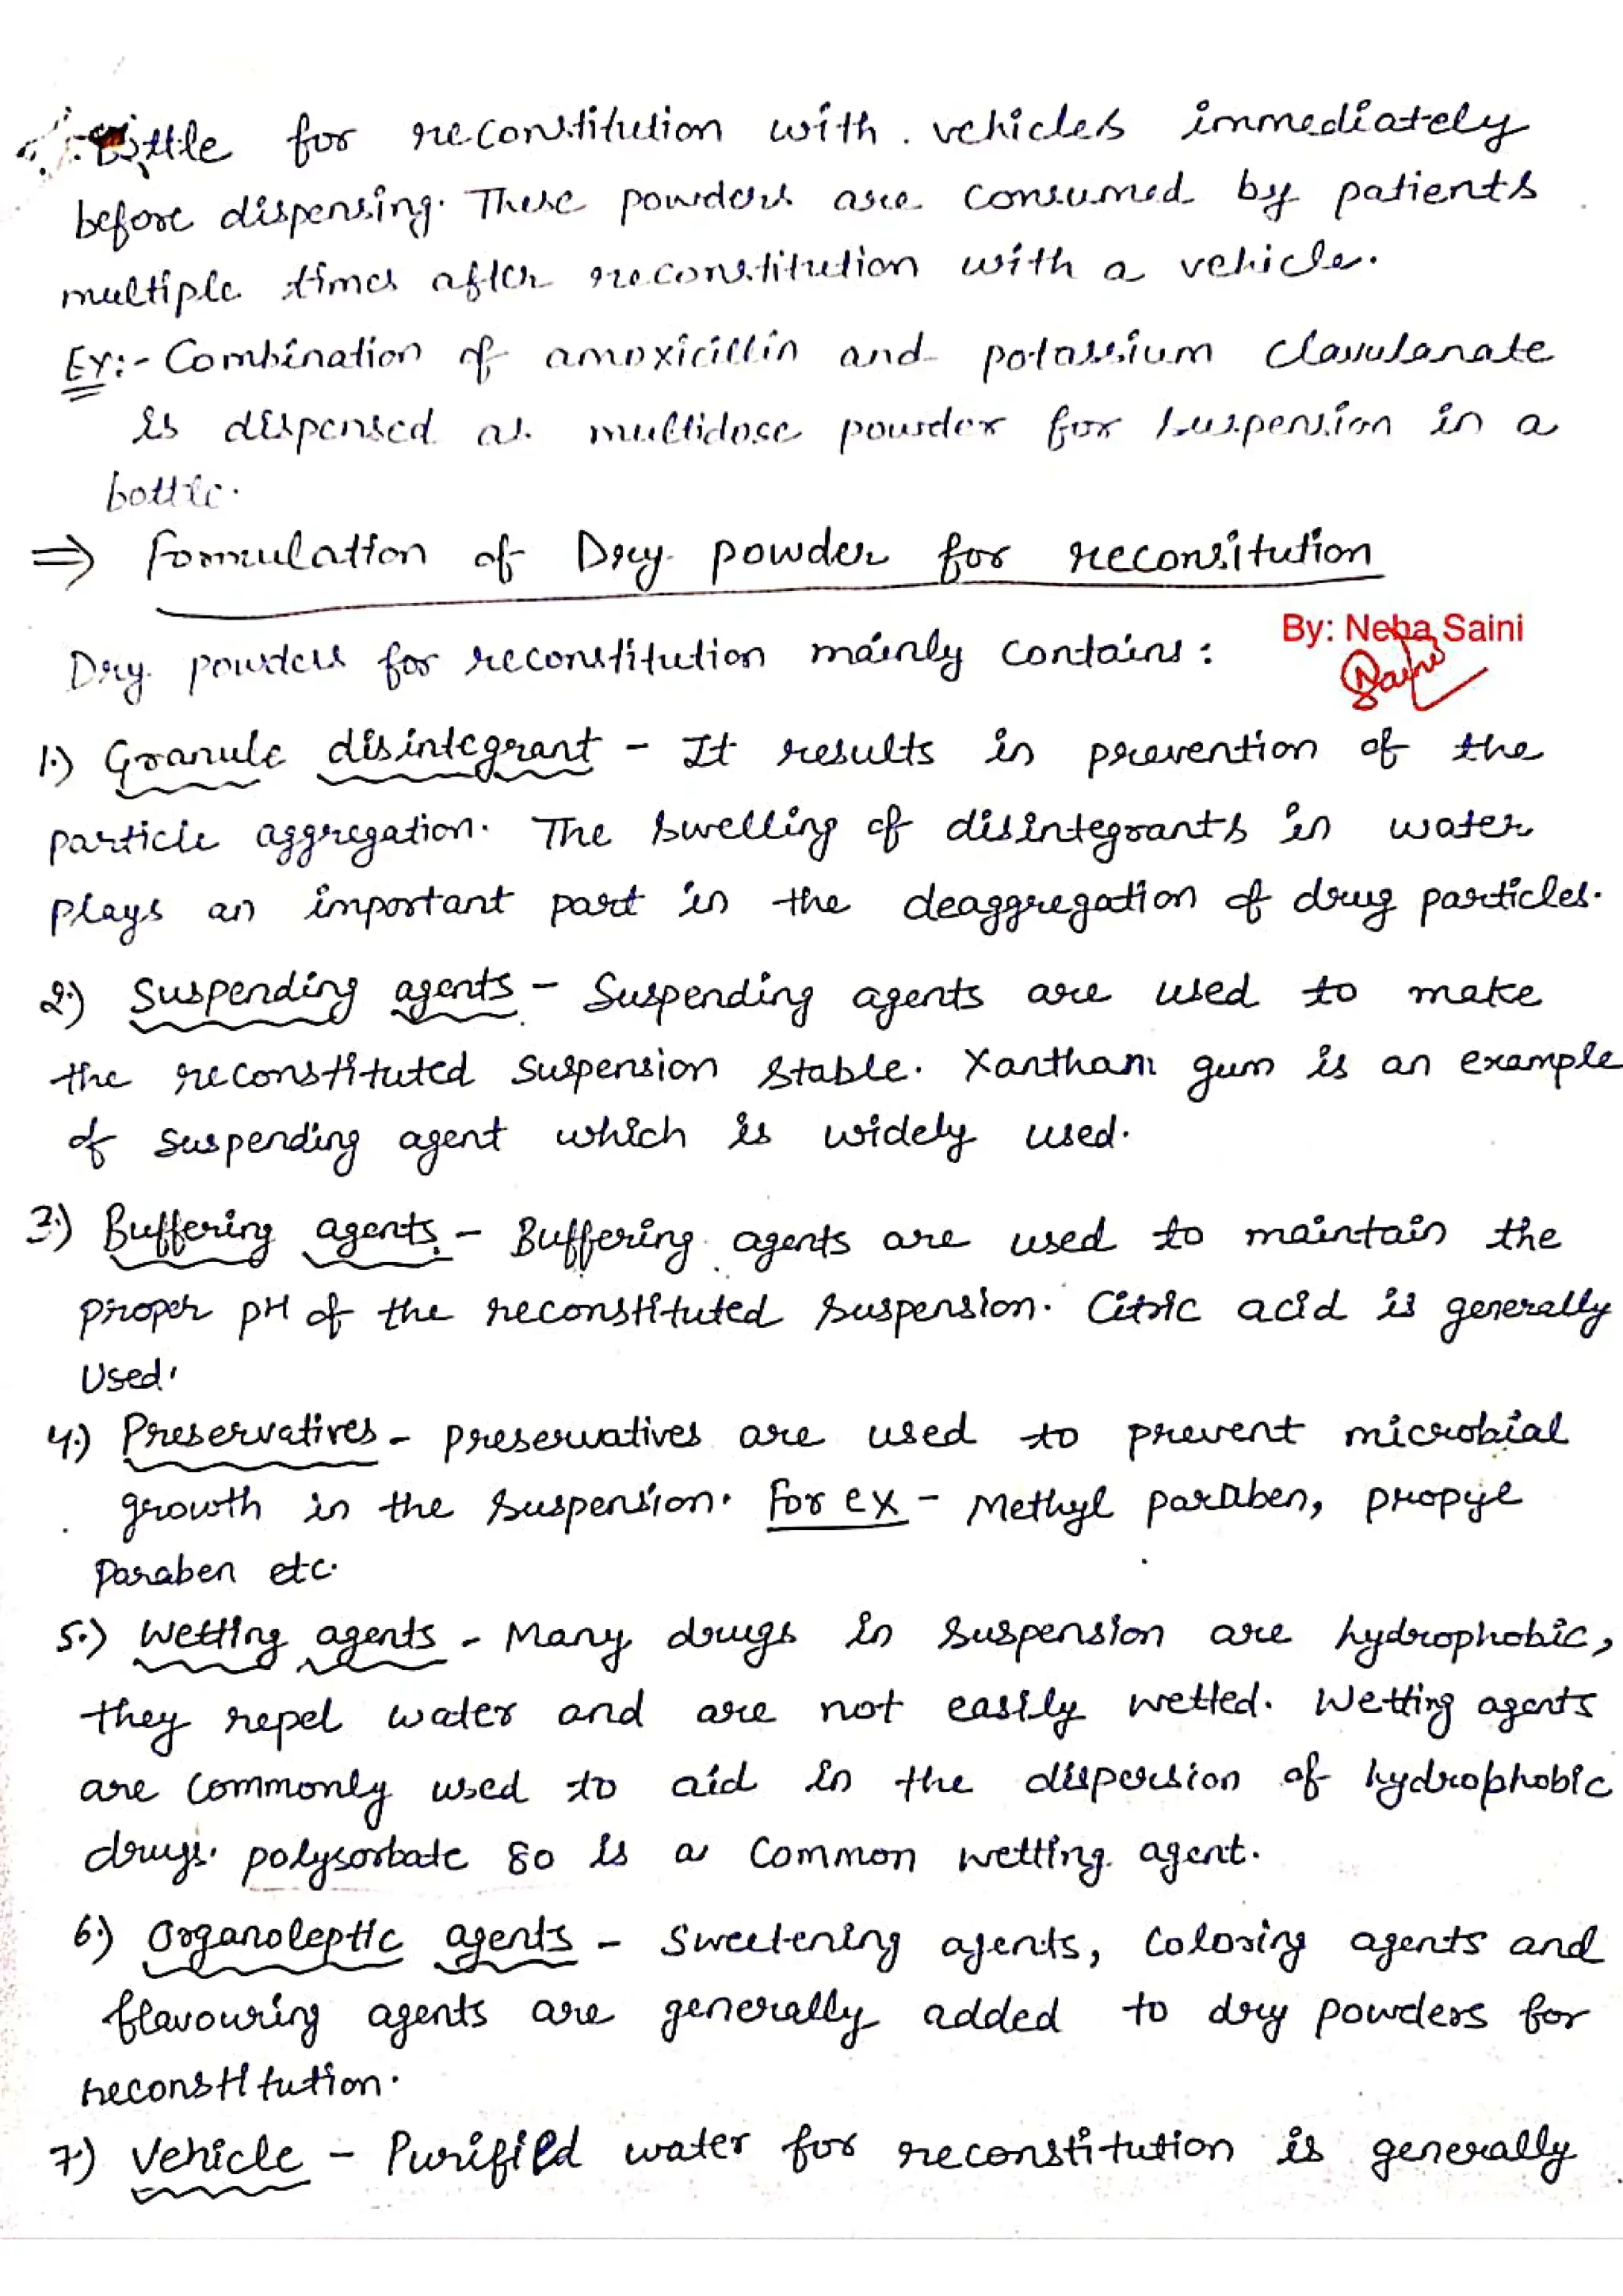 Bottle for reconstitution with vehicles immediately
before dispensing. These powders are consumed by patients
multiple times after reconstitution with a vehicle.
Ex:- Combination of amoxicillin and potassium clavulanate
is dispensed as multidose powder for suspension in a
bottle.
⇒ Formulation of Dry powder for reconsitution
By: Neha Saini
Dry powders for reconstitution mainly contains:
1.) Granule disintegrant - It results in prevention of the
particle aggregation. The swelling of disintegrants in water
plays an important part in the deaggregation of drug particles.
2.) Suspending agents - Suspending agents are used to make
the reconstituted suspension stable. Xantham gum is an example
of suspending agent which is widely used.
3.) Buffering agents - Buffering agents are used to maintain the
proper pH of the reconstituted suspension. Citric acid is generally
used.
4.) Preservatives - preservatives are used to prevent microbial
growth in the suspension. For ex - Methyl paraben, propyl
Paraben etc.
5.) Wetting agents - Many drugs in suspension are hydrophobic,
they repel water and are not easily wetted. Wetting agents
are commonly used to aid in the dispersion of hydrophobic
drugs. polysorbate 80 is a common wetting agent.
6.) Organoleptic agents - Sweetening agents, coloring agents and
flavouring agents are generally added to dry powders for
reconstitution.
7.) Vehicle - Purified water for reconstitution is generally